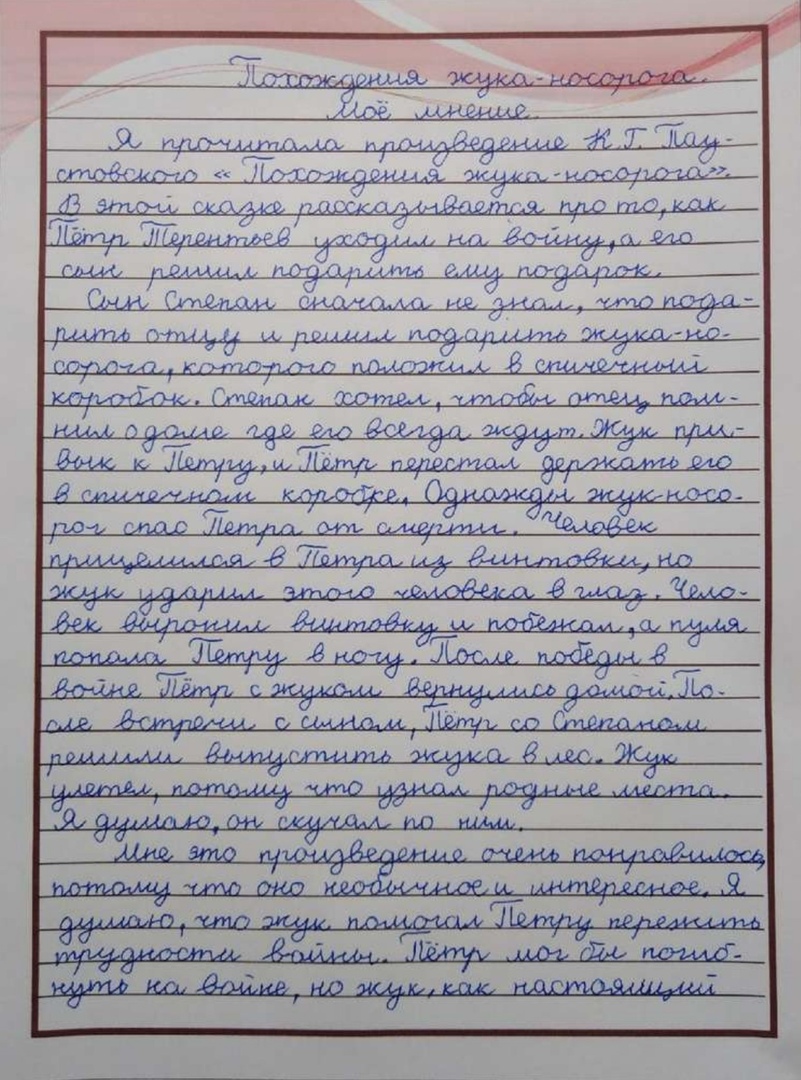 Похождения жука-носорога.
Моё мнение.
Я прочитала произведение К.Г. Пау-
стовского «Похождения жука-носорога».
В этой сказке рассказывается про то, как
Пётр Терентьев уходил на войну, а его
сын решил подарить ему подарок.
Сын Степан сначала не знал, что пода-
рить отцу и решил подарить жука-но-
сорога, которого положил в спичечный
коробок. Степан хотел, чтобы отец пом-
нил о доме где его всегда ждут. Жук при-
вык к Петру, и Пётр перестал держать его
в спичечном коробке. Однажды жук-носо-
рог спас Петра от смерти. Человек
прицелился в Петра из винтовки, но
жук ударил этого человека в глаз. Чело-
век выронил винтовку и побежал, а пуля
попала Петру в ногу. После победы в
войне Пётр с жуком вернулись домой. По-
сле встречи с сыном, Пётр со Степаном
решили выпустить жука в лес. Жук
улетел, потому что узнал родные места.
Я думаю, он скучал по ним.
Мне это произведение очень понравилось,
потому что оно необычное и интересное. Я
думаю, что жук помогал Петру пережить
трудности войны. Пётр мог бы погиб-
нуть на войне, но жук, как настоящий